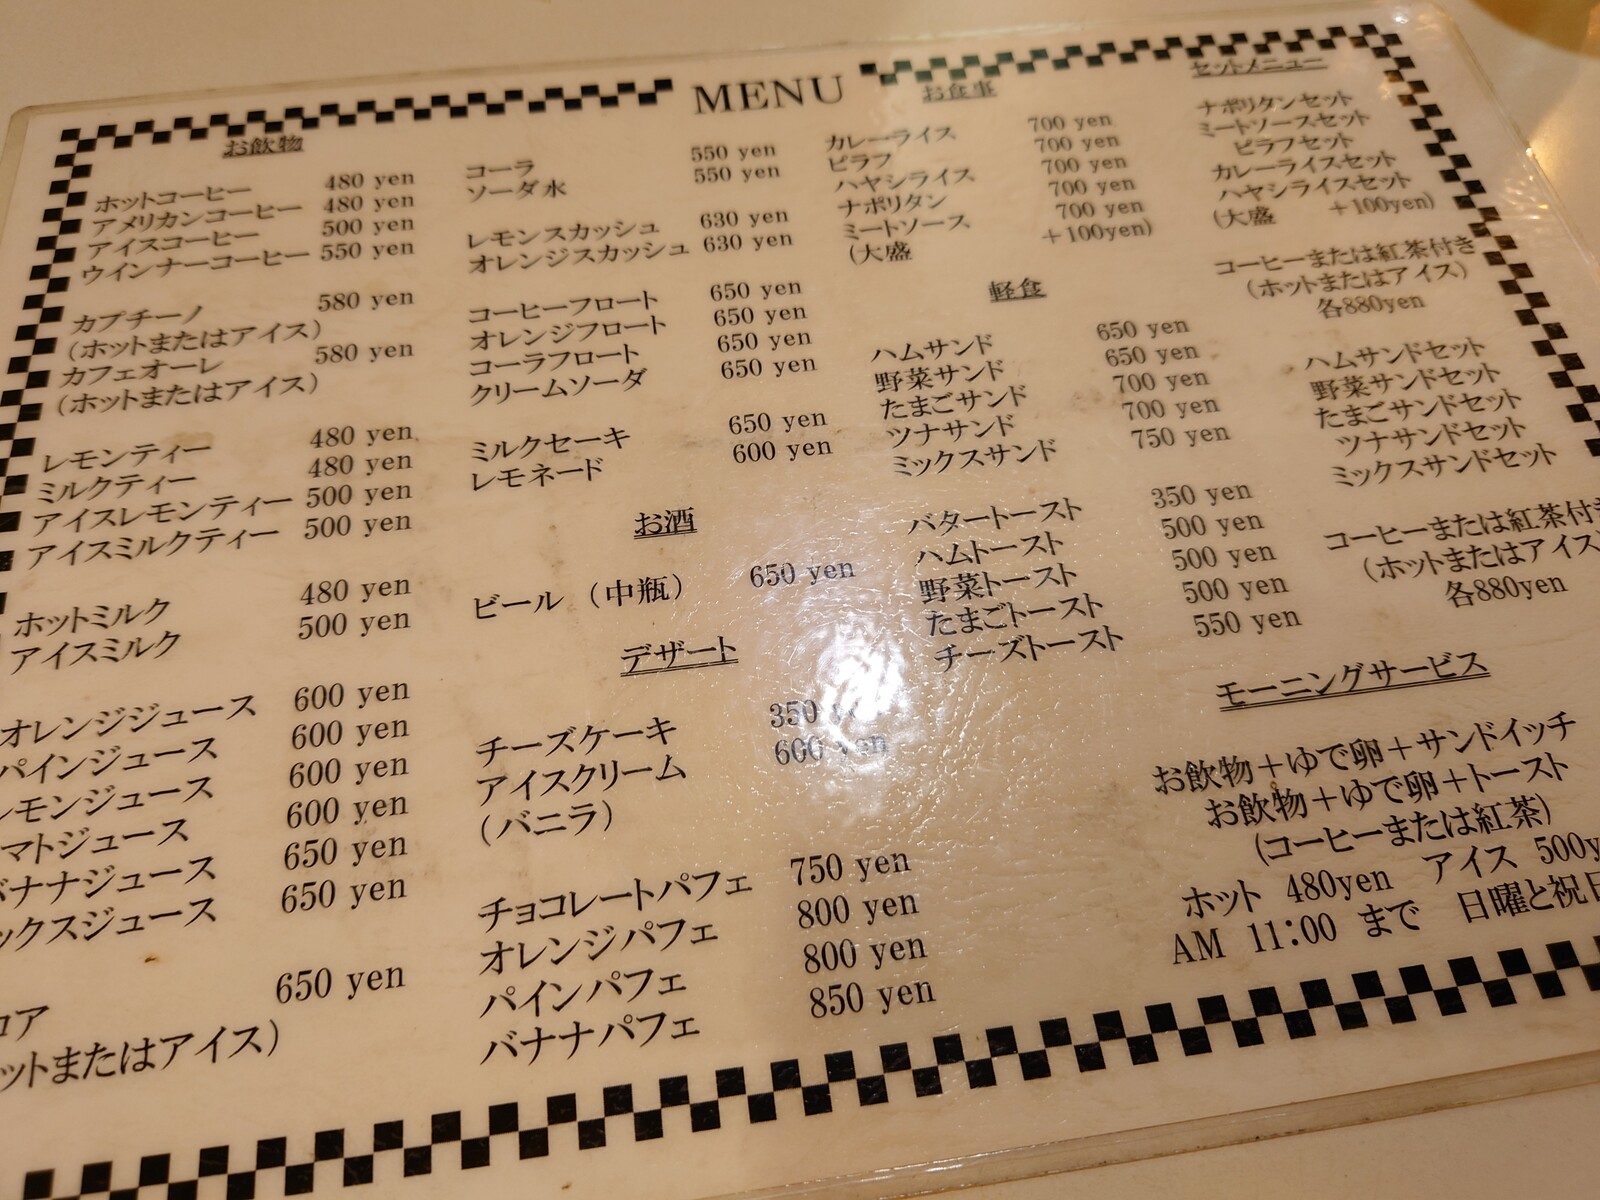 MENU
お飲物
ホットコーヒー 480 yen
アメリカンコーヒー 480 yen
アイスコーヒー 500 yen
ウインナーコーヒー 550 yen
カプチーノ 580 yen
(ホットまたはアイス)
カフェオーレ 580 yen
(ホットまたはアイス)
レモンティー 480 yen
ミルクティー 480 yen
アイスレモンティー 500 yen
アイスミルクティー 500 yen
ホットミルク 480 yen
アイスミルク 500 yen
オレンジジュース 600 yen
パインジュース 600 yen
レモンジュース 600 yen
マトジュース 600 yen
バナナジュース 650 yen
ックスジュース 650 yen
コア 650 yen
ットまたはアイス)
コーラ 550 yen
ソーダ水 550 yen
レモンスカッシュ 630 yen
オレンジスカッシュ 630 yen
コーヒーフロート 650 yen
オレンジフロート 650 yen
コーラフロート 650 yen
クリームソーダ 650 yen
ミルクセーキ 650 yen
レモネード 600 yen
お酒
ビール（中瓶） 650 yen
デザート
チーズケーキ 350 yen
アイスクリーム 600 yen
(バニラ)
チョコレートパフェ 750 yen
オレンジパフェ 800 yen
パインパフェ 800 yen
バナナパフェ 850 yen
お食事
カレーライス 700 yen
ピラフ 700 yen
ハヤシライス 700 yen
ナポリタン 700 yen
ミートソース 700 yen
(大盛 +100yen)
軽食
ハムサンド 650 yen
野菜サンド 650 yen
たまごサンド 700 yen
ツナサンド 700 yen
ミックスサンド 750 yen
バタートースト 350 yen
ハムトースト 500 yen
野菜トースト 500 yen
たまごトースト 500 yen
チーズトースト 550 yen
セットメニュー
ナポリタンセット
ミートソースセット
ピラフセット
カレーライスセット
ハヤシライスセット
(大盛 +100yen)
コーヒーまたは紅茶付き
(ホットまたはアイス)
各880yen
ハムサンドセット
野菜サンドセット
たまごサンドセット
ツナサンドセット
ミックスサンドセット
コーヒーまたは紅茶付き
(ホットまたはアイス)
各880yen
モーニングサービス
お飲物+ゆで卵+サンドイッチ
お飲物+ゆで卵+トースト
(コーヒーまたは紅茶)
ホット 480yen アイス 500y
AM 11:00 まで 日曜と祝日